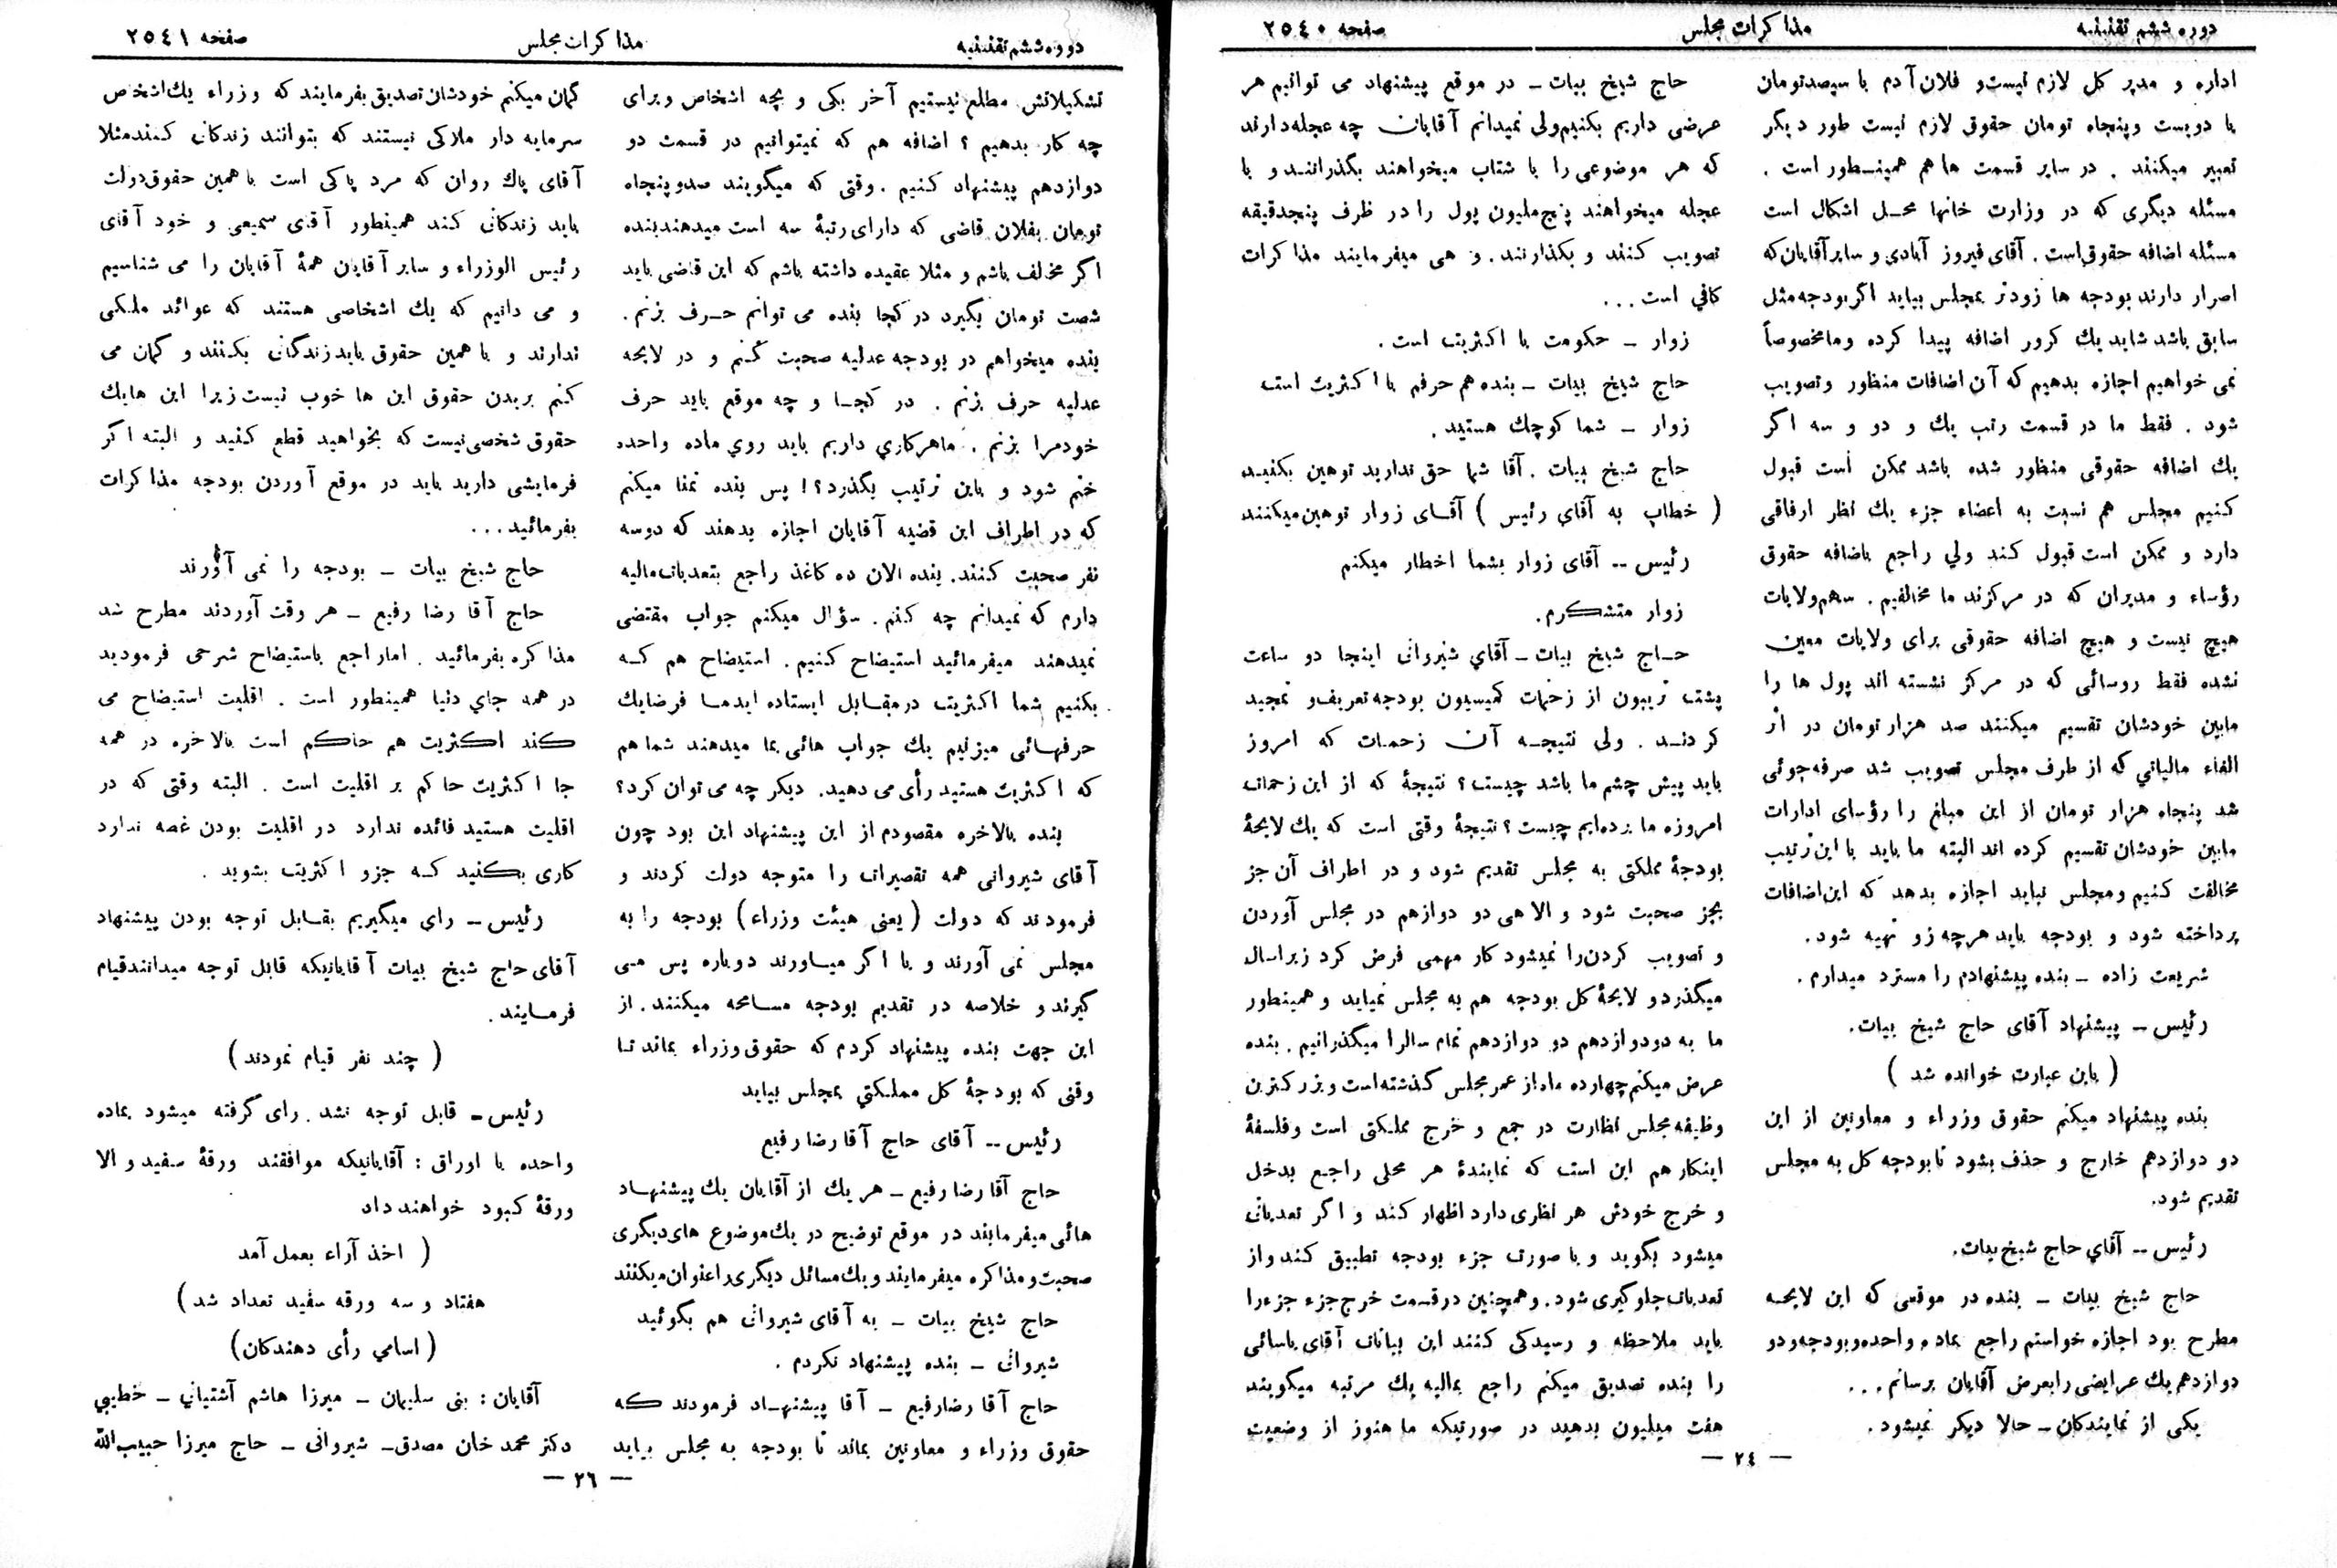 دوره ششم تقنینیه
مذاکرات مجلس
صفحه ۲۵۴۰
اداره و مدیر کل لازم نیست و فلان آدم با سیصد تومان
یا دویست و پنجاه تومان حقوق لازم نیست طور دیگر
تعبیر میکنند . در سایر قسمت ها هم همینطور است .
مسئله دیگری که در وزارت خانها محل اشکال است
مسئله اضافه حقوق است . آقای فیروز آبادی و سایر آقایان که
اصرار دارند بودجه ها زودتر بمجلس بیاید اگر بودجه مثل
سابق باشد شاید یك کرور اضافه پیدا کرده و ما مخصوصاً
نمی خواهیم اجازه بدهیم که آن اضافات منظور و تصویب
شود . فقط ما در قسمت رتب یك و دو و سه اگر
یك اضافه حقوقی منظور شده باشد ممکن است قبول
کنیم مجلس هم نسبت به اعضاء جزء یك نظر ارفاقی
دارد و ممکن است قبول کند ولي راجع باضافه حقوق
رؤساء و مدیران که در مرکزند ما مخالفیم . سهم ولایات
هیچ نیست و هیچ اضافه حقوقی برای ولایات معین
نشده فقط روسائی که در مرکز نشسته اند پول ها را
مابین خودشان تقسیم میکنند صد هزار تومان در اثر
الغاء مالیاتي که از طرف مجلس تصویب شد صرفه جوئی
شد پنجاه هزار تومان از این مبلغ را رؤسای ادارات
مابین خودشان تقسیم کرده اند البته ما باید با این ترتیب
مخالفت کنیم و مجلس نباید اجازه بدهد که این اضافات
پرداخته شود و بودجه باید هرچه زو تهیه شود .
شریعت زاده ـ بنده پیشنهادم را مسترد میدارم .
رئیس ـ پیشنهاد آقای حاج شیخ بیات.
( باین عبارت خوانده شد )
بنده پیشنهاد میکنم حقوق وزراء و معاونین از این
دو دوازدهم خارج و حذف بشود تا بودجه کل به مجلس
تقدیم شود.
رئیس -- آقاي حاج شیخ بیات.
حاج شیخ بیات ـ بنده در موقعی که این لایحه
مطرح بود اجازه خواستم راجع بماده واحده و بودجه و دو
دوازدهم یك عرایضی را بعرض آقایان برسانم . . .
یکی از نمایندگان ـ حالا دیگر نمیشود .
حاج شیخ بیات ـ در موقع پیشنهاد می توانیم هر
عرضی داریم بکنیم ولی نمیدانم آقایان چه عجله دارند
که هر موضوعی را با شتاب میخواهند بگذرانند و با
عجله میخواهند پنج ملیون پول را در ظرف پنجدقیقه
تصویب کنند و بگذارنند . و هی میفرمایند مذاکرات
کافي است . . .
زوار ـ حکومت با اکثریت است .
حاج شیخ بیات ـ بنده هم حرفم با اکثریت است
زوار ـ شما کوچك هستید .
حاج شیخ بیات . آقا شما حق ندارید توهین بکنید
( خطاب به آقای رئیس ) آقای زوار توهین میکنند
رئیس -- آقای زوار بشما اخطار میکنم
زوار متشکرم .
حاج شیخ بیات ـ آقاي شیروانی اینجا دو ساعت
پشت تریبون از زحمات کمیسیون بودجه تعریف و تمجید
کردند . ولی نتیجه آن زحمات که امروز
باید پیش چشم ما باشد چیست ؟ نتیجهٔ که از این زحمات
امروزه ما برده‌ایم چیست ؟ نتیجهٔ وقتی است که یك لایحهٔ
بودجهٔ مملکتی به مجلس تقدیم شود و در اطراف آن جز
بجز صحبت شود و الا هی دو دوازدهم در مجلس آوردن
و تصویب کردن را نمیشود کار مهمی فرض کرد زیرا سال
میگذرد و لایحهٔ کل بودجه هم به مجلس نمیاید و همینطور
ما به دو دوازدهم دو دوازدهم تمام سال را میگذرانیم . بنده
عرض میکنم چهارده ماه از عمر مجلس گذشته است و بزرگترین
وظیفه مجلس نظارت در جمع و خرج مملکتی است و فلسفهٔ
اینکار هم این است که نمایندهٔ هر محلی راجع بدخل
و خرج خودش هر نظری دارد اظهار کند و اگر تعدیاتی
میشود بگوید و با صورت جزء بودجه تطبیق کند و از
تعدیات جلوگیری شود . و همچنین در قسمت خرج جزء جزء را
باید ملاحظه و رسیدگی کنند این بیانات آقای یاسائی
را بنده تصدیق میکنم راجع بمالیه یك مرتبه میگویند
هفت میلیون بدهید در صورتیکه ما هنوز از وضعیت
— ٢٤ —
دوره ششم تقنینیه
مذاکرات مجلس
صفحه ۲۵۴۱
تشکیلاتش مطلع نیستیم آخر بکی و بچه اشخاص و برای
چه کار بدهیم ؟ اضافه هم که نمیتوانیم در قسمت دو
دوازدهم پیشنهاد کنیم . وقتی که میگویند صد و پنجاه
تومان بفلان قاضی که دارای رتبهٔ سه است میدهند بنده
اگر مخالف باشم و مثلا عقیده داشته باشم که این قاضی باید
شصت تومان بگیرد در کجا بنده می توانم حرف بزنم .
بنده میخواهم در بودجه عدلیه صحبت کنم و در لایحه
عدلیه حرف بزنم . در کجا و چه موقع باید حرف
خودمرا بزنم . ماهرکاري داریم باید روي ماده واحده
ختم شود و باین ترتیب بگذرد؟! پس بنده تمنا میکنم
که در اطراف این قضیه آقایان اجازه بدهند که دوسه
نفر صحبت کنند . بنده الان ده کاغذ راجع بتعدیات مالیه
دارم که نمیدانم چه کنم . سؤال میکنم جواب مقتضی
نمیدهند میفرمائید استیضاح کنیم . استیضاح هم که
بکنیم شما اکثریت در مقابل ایستاده اید ما فرضا یك
حرفهائی میزنیم یك جواب هائی بما میدهند شما هم
که اکثریت هستید رأی می دهید . دیگر چه می توان کرد؟
بنده بالاخره مقصودم از این پیشنهاد این بود چون
آقای شیروانی همه تقصیرات را متوجه دولت کردند و
فرمودند که دولت (یعنی هیئت وزراء) بودجه را به
مجلس نمی آورند و یا اگر میاورند دوباره پس می
گیرند و خلاصه در تقدیم بودجه مسامحه میکنند . از
این جهت بنده پیشنهاد کردم که حقوق وزراء بماند تا
وقتی که بودجهٔ کل مملکتي بمجلس بیاید
رئیس -- آقای حاج آقا رضا رفیع
حاج آقا رضا رفیع ـ هر یك از آقایان یك پیشنهاد
هائی میفرمایند در موقع توضیح در یك موضوع های دیگری
صحبت و مذاکره میفرمایند و یك مسائل دیگری را عنوان میکنند
حاج شیخ بیات ـ به آقای شیروانی هم بگوئید
شیروانی ـ بنده پیشنهاد نکردم .
حاج آقا رضا رفیع ـ آقا پیشنهاد فرمودند که
حقوق وزراء و معاونین بماند تا بودجه به مجلس بیاید
گمان میکنم خودشان تصدیق بفرمایند که وزراء یك اشخاص
سرمایه دار ملاکی نیستند که بتوانند زندگانی کنند مثلا
آقای پاك روان که مرد پاکی است با همین حقوق دولت
باید زندگانی کند همینطور آقای سمیعی و خود آقای
رئیس الوزراء و سایر آقایان همهٔ آقایان را می شناسیم
و می دانیم که یك اشخاصی هستند که عوائد ملکی
ندارند و با همین حقوق باید زندگانی بکنند و گمان می
کنم بریدن حقوق این ها خوب نیست زیرا این ها یك
حقوق شخصی نیست که بخواهید قطع کنید و البته اگر
فرمایشی دارید باید در موقع آوردن بودجه مذاکرات
بفرمائید . . .
حاج شیخ بیات ـ بودجه را نمی آورند
حاج آقا رضا رفیع ـ هر وقت آوردند مطرح شد
مذاکره بفرمائید . اما راجع باستیضاح شرحی فرمودید
در همه جاي دنیا همینطور است . اقلیت استیضاح می
کند اکثریت هم حاکم است بالاخره در همه
جا اکثریت حاکم بر اقلیت است . البته وقتی که در
اقلیت هستید فائده ندارد در اقلیت بودن غصه ندارد
کاری بکنید که جزو اکثریت بشوید .
رئیس ـ رای میگیریم بقابل توجه بودن پیشنهاد
آقای حاج شیخ بیات آقایانیکه قابل توجه میدانند قیام
فرمایند .
( چند نفر قیام نمودند )
رئیس ـ قابل توجه نشد . رای گرفته میشود بماده
واحده با اوراق : آقایانیکه موافقند ورقهٔ سفید و الا
ورقهٔ کبود خواهند داد
( اخذ آراء بعمل آمد
هفتاد و سه ورقه سفید تعداد شد )
(اسامي رأی دهندگان)
آقایان : بنی سلیمان ـ میرزا هاشم آشتیاني ـ خطیبي
دکتر محمد خان مصدق ـ شیروانی ـ حاج میرزا حبیب الله
— ٢٦ —